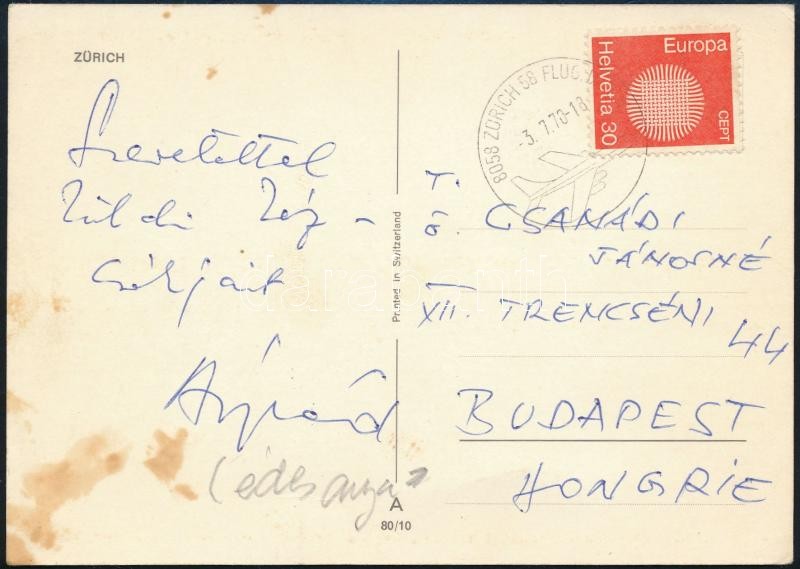 ZÜRICH
Szeretettel
küldi kéz-
csókjait
Árpád
(édesanyja)
Printed in Switzerland
A
80/10
8058 ZÜRICH 58 FLUG
-3.7.70-18
Europa
Helvetia 30
CEPT
T.
ö. CSANÁDI
JÁNOSNÉ
XII. TRENCSÉNI
44
BUDAPEST
HONGRIE